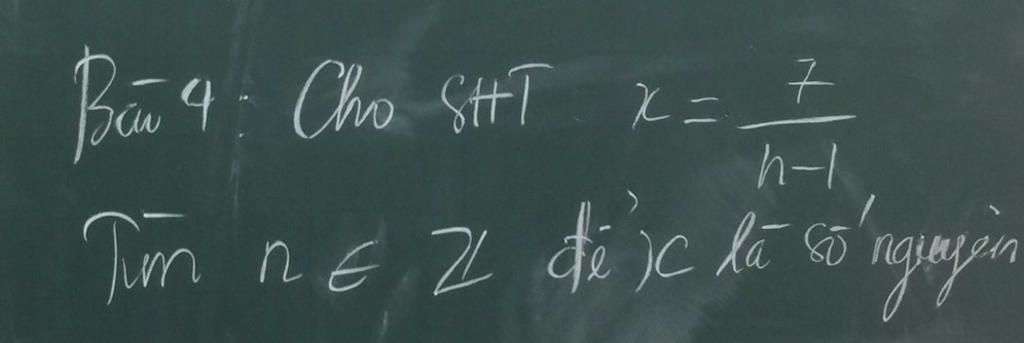 Bài 4: Cho SHT x = 7/(n-1)
Tìm n ∈ Z để x là số nguyên